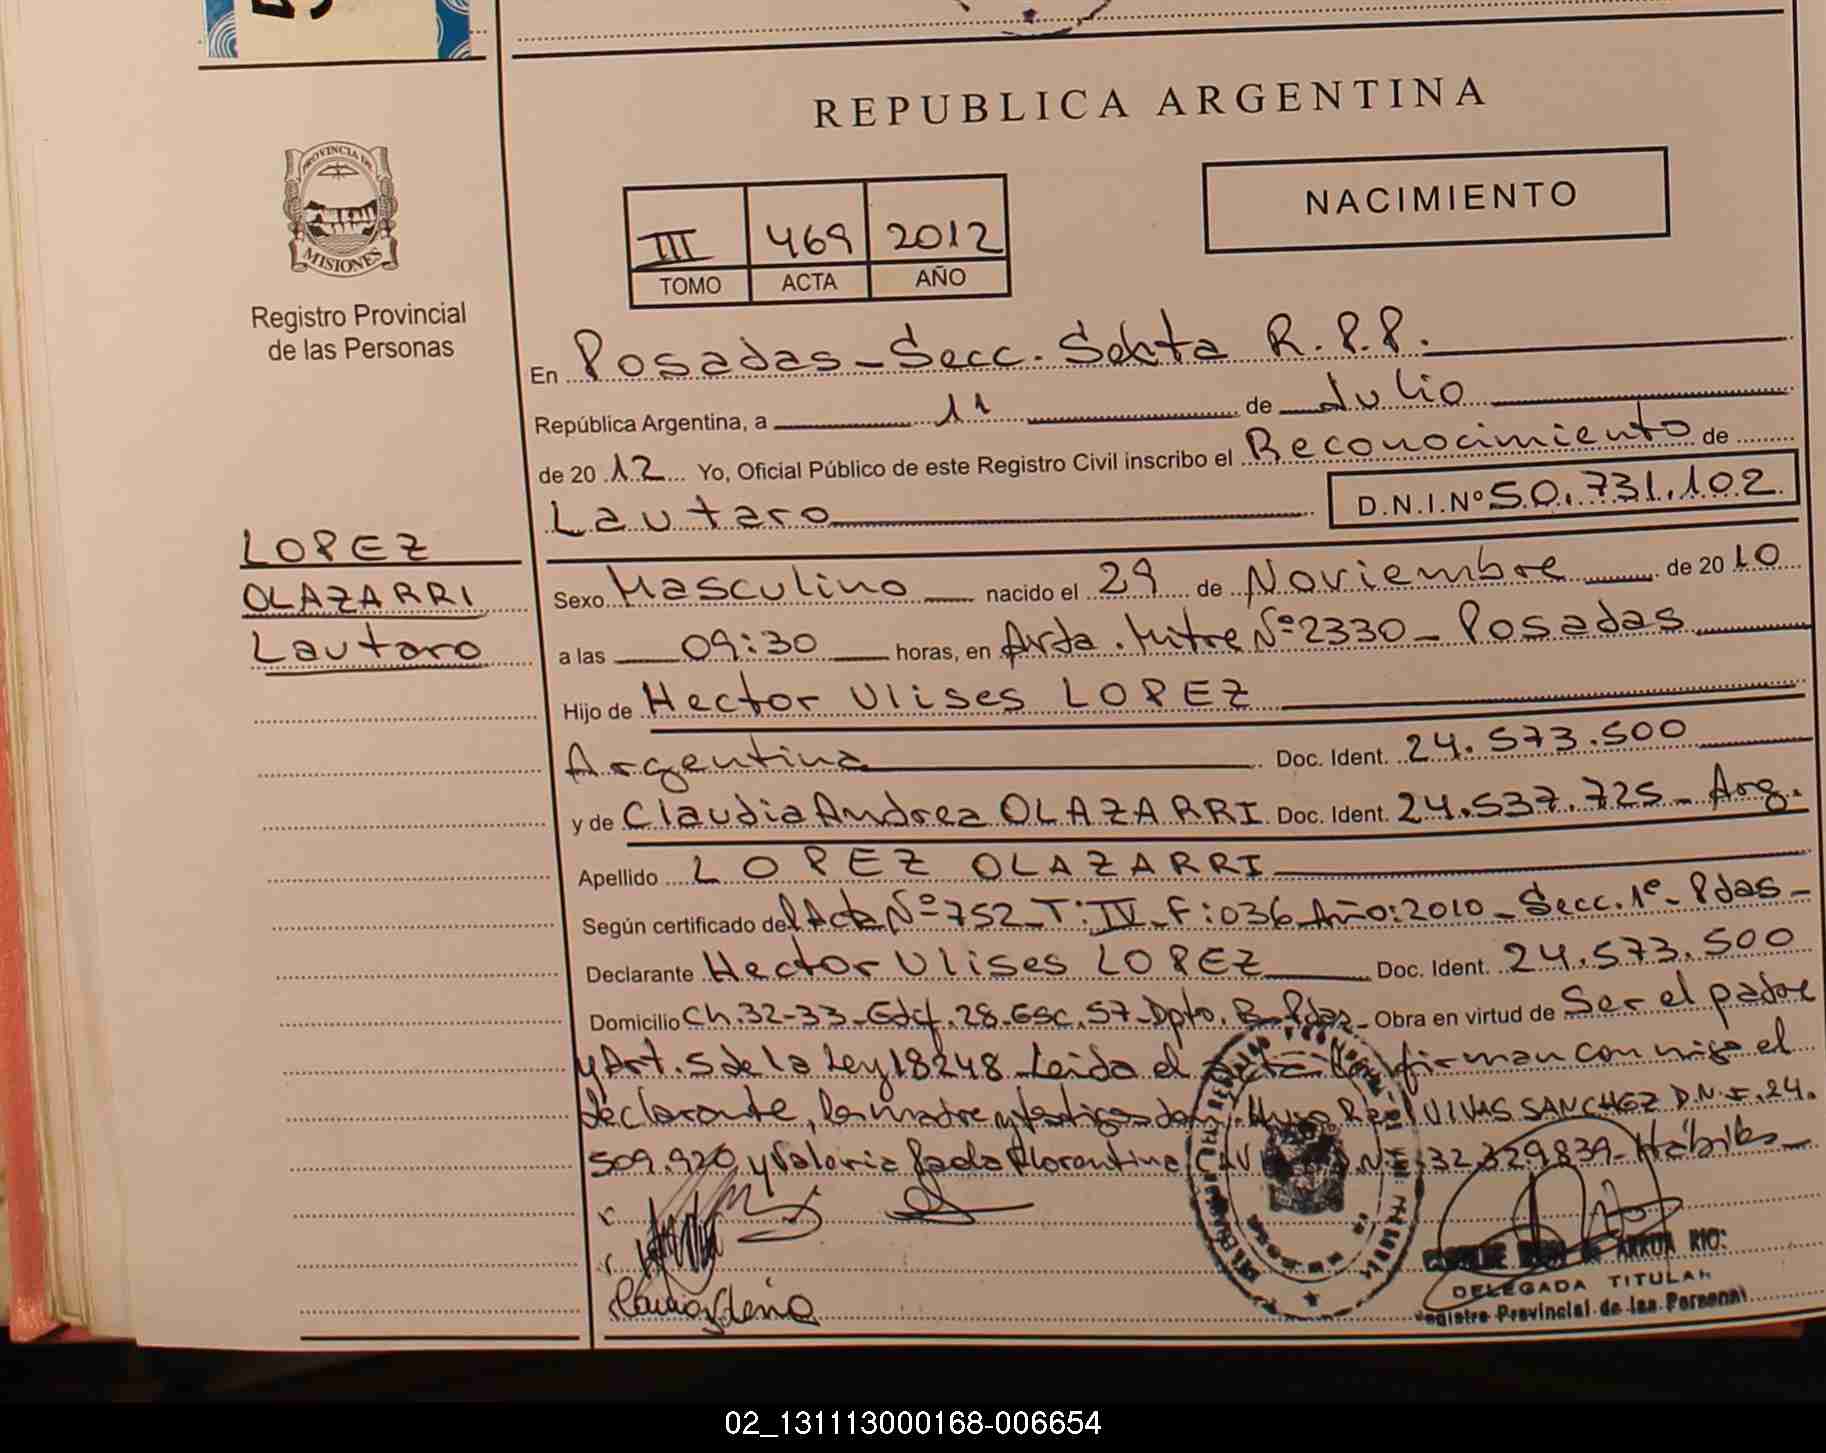 REPUBLICA ARGENTINA
PROVINCIA DE
MISIONES
Registro Provincial
de las Personas
NACIMIENTO
III 469 2012
TOMO ACTA AÑO
En Posadas - Secc. Sexta R.P.P.
República Argentina, a 11 de Julio
de 2012 Yo, Oficial Público de este Registro Civil inscribo el Reconocimiento de
Lautaro D.N.I.Nº 50.731.102
LOPEZ
OLAZARRI
Lautaro
Sexo Masculino nacido el 29 de Noviembre de 2010
a las 09:30 horas, en Avda. Mitre Nº 2330 - Posadas
Hijo de Hector Ulises LOPEZ
Argentina Doc. Ident. 24.573.500
y de Claudia Andrea OLAZARRI Doc. Ident. 24.537.725 - Arg.
Apellido LOPEZ OLAZARRI
Según certificado del Acta Nº 752 - T: IV - F: 036 Año: 2010 - Secc. 1º - Pdas -
Declarante Hector Ulises LOPEZ Doc. Ident. 24.573.500
Domicilio Ch. 32-33 - Edif. 28 - Esc. 57 - Dpto. B - Pdas - Obra en virtud de Ser el padre
y Art. 5 de la Ley 18248 - Leida el acta la firman conmigo el
declarante, la madre y testigos don Hugo VIVAS SANCHEZ D.N.I. 24.
509.920 y Valeria Paola Florentina 32.329839 - Hábiles
DELEGADA TITULAR
Registro Provincial de las Personas
02_131113000168-006654